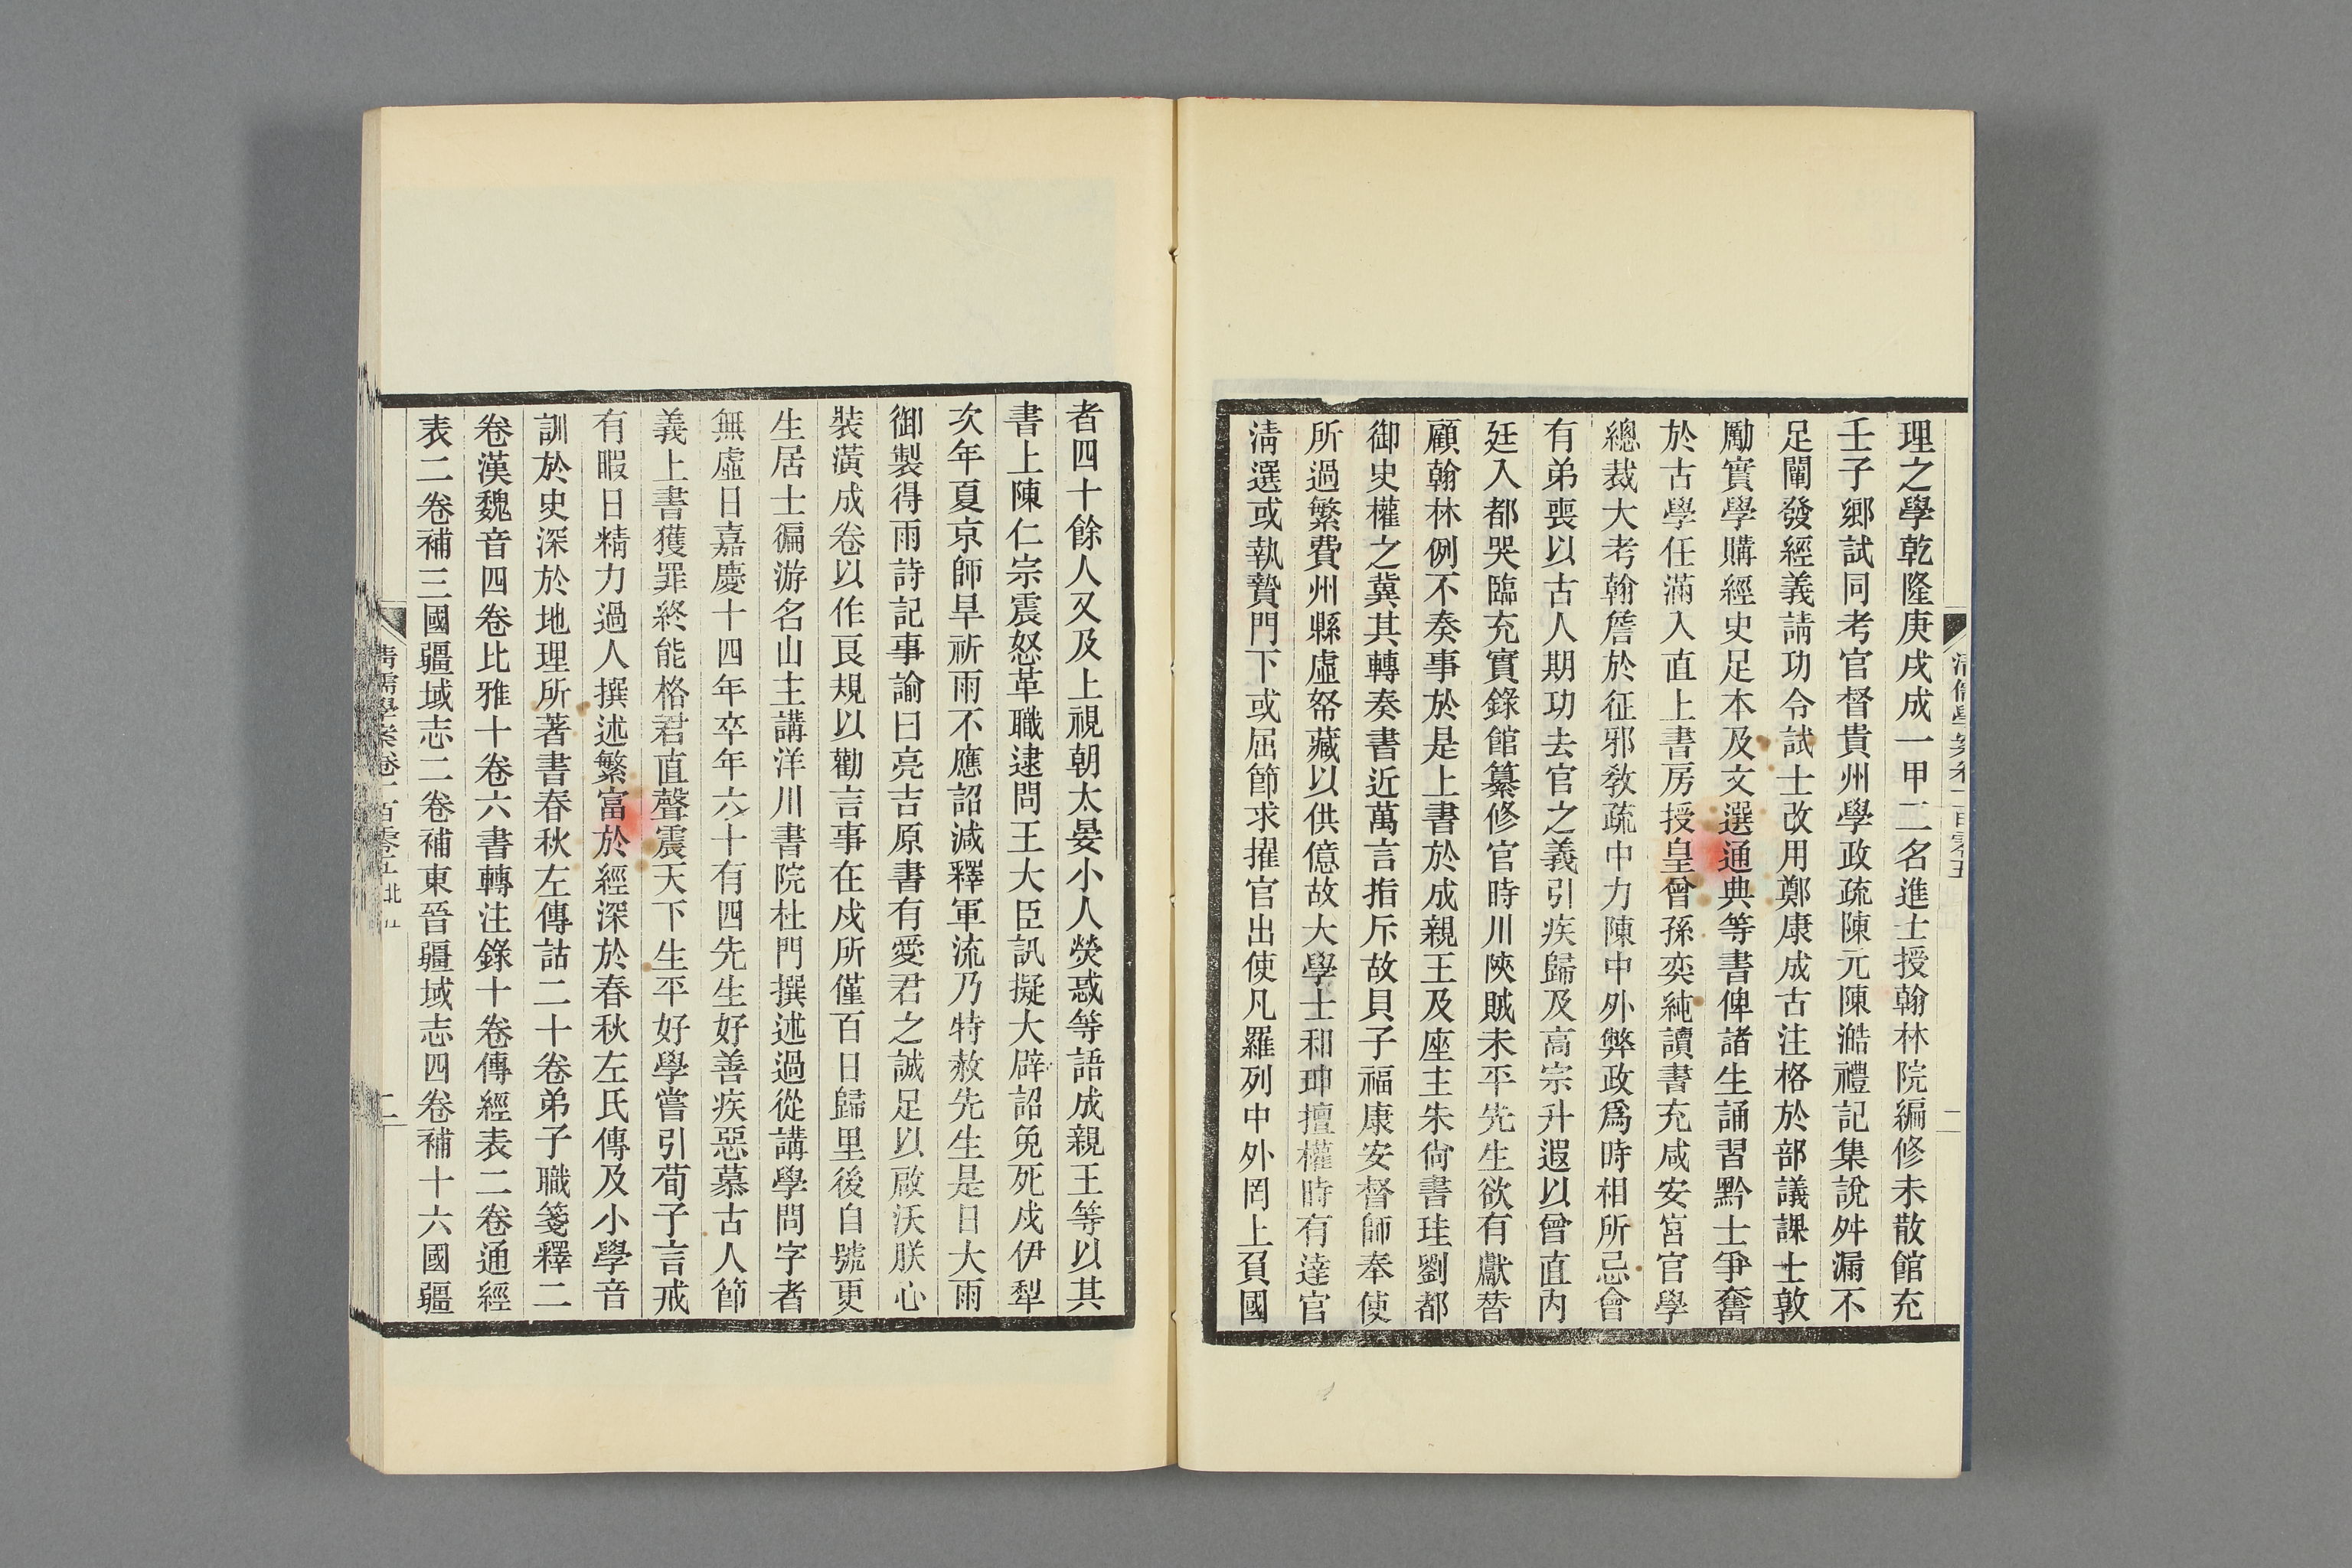 理之學乾隆庚戌成一甲二名進士授翰林院編修未散館充
壬子鄉試同考官督貴州學政疏陳元陳澔禮記集說舛漏不
足闡發經義請功令試士改用鄭康成古注格於部議課士敦
勵實學購經史足本及文選通典等書俾諸生誦習黔士爭奮
於古學任滿入直上書房授皇曾孫奕純讀書充咸安宮官學
總裁大考翰詹於征邪敎疏中力陳中外弊政爲時相所忌會
有弟喪以古人期功去官之義引疾歸及高宗升遐以曾直內
廷入都哭臨充實錄館纂修官時川陝賊未平先生欲有獻替
顧翰林例不奏事於是上書於成親王及座主朱尙書珪劉都
御史權之冀其轉奏書近萬言指斥故貝子福康安督師奉使
所過繁費州縣虛帑藏以供億故大學士和珅擅權時有達官
淸選或執贄門下或屈節求擢官出使凡羅列中外罔上負國
者四十餘人又及上視朝太晏小人熒惑等語成親王等以其
書上陳仁宗震怒革職逮問王大臣訊擬大辟詔免死戍伊犁
次年夏京師旱祈雨不應詔減釋軍流乃特赦先生是日大雨
御製得雨詩記事諭曰亮吉原書有愛君之誠足以啟沃朕心
裝潢成卷以作良規以勸言事在戍所僅百日歸里後自號更
生居士徧游名山主講洋川書院杜門撰述過從講學問字者
無虛日嘉慶十四年卒年六十有四先生好善疾惡慕古人節
義上書獲罪終能格君直聲震天下生平好學嘗引荀子言戒
有暇日精力過人撰述繁富於經深於春秋左氏傳及小學音
訓於史深於地理所著書春秋左傳詁二十卷弟子職箋釋二
卷漢魏音四卷比雅十卷六書轉注錄十卷傳經表二卷通經
表二卷補三國疆域志二卷補東晉疆域志四卷補十六國疆
清儒學案卷一百零五 北五
二